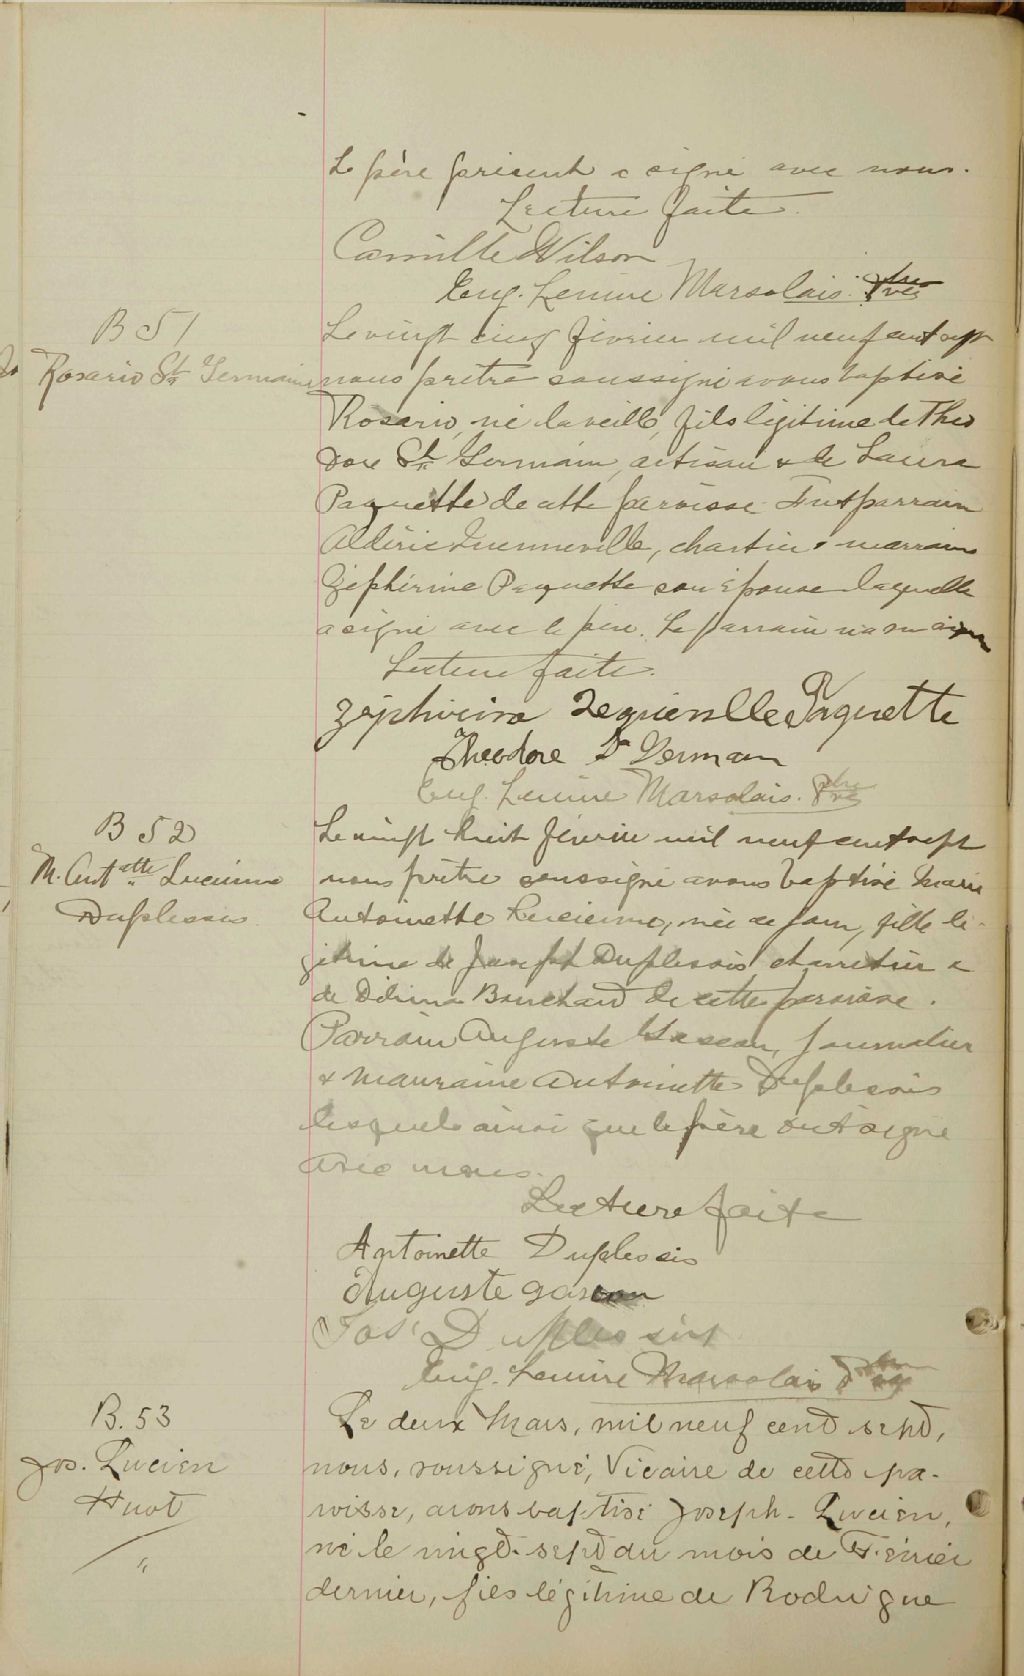 Le père present a signé avec nous.
Lecture faite.
Camille Wilson
Eug. Lemire Marsolais. Ptre
B 51
Rosario St Germain
Le vingt cinq février mil neuf cent sept
nous prêtre soussigné avons baptisé
Rosario, né la veille, fils légitime de Théo
dore St Germain, artisan & de Laura
Paquette de cette paroisse. Fut parrain
Aldéric Quenneville, charretier & marraine
Zéphirine Paquette son épouse laquelle
a signé avec le père. Le parrain n'a su signer
Lecture faite.
Zéphirina Paquette
Theodore St Germain
Eug. Lemire Marsolais. Ptre
B 52
M. Ant.ette Lucienne
Duplessis
Le vingt huit février mil neuf cent sept
nous prêtre soussigné avons baptisé Marie
Antoinette Lucienne, née ce jour, fille lé-
gitime de Joseph Duplessis charretier &
de Délima Bouchard de cette paroisse.
Parrain Auguste Gascon, journalier
& marraine Antoinette Duplessis
lesquels ainsi que le père ont signé
avec nous.
Lecture faite
Antoinette Duplessis
Auguste gascon
Jos Duplessis
Eug. Lemire Marsolais Ptre
B. 53
Jos. Lucien
Huot
Le deux Mars, mil neuf cent sept,
nous, soussigné, Vicaire de cette pa-
roisse, avons baptisé Joseph-Lucien,
né le vingt-sept du mois de Février
dernier, fils légitime de Rodrigue